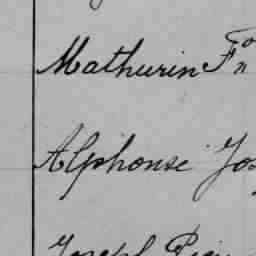 Mathurin Fᵒⁿ
Alphonse Jos
Joseph Pier